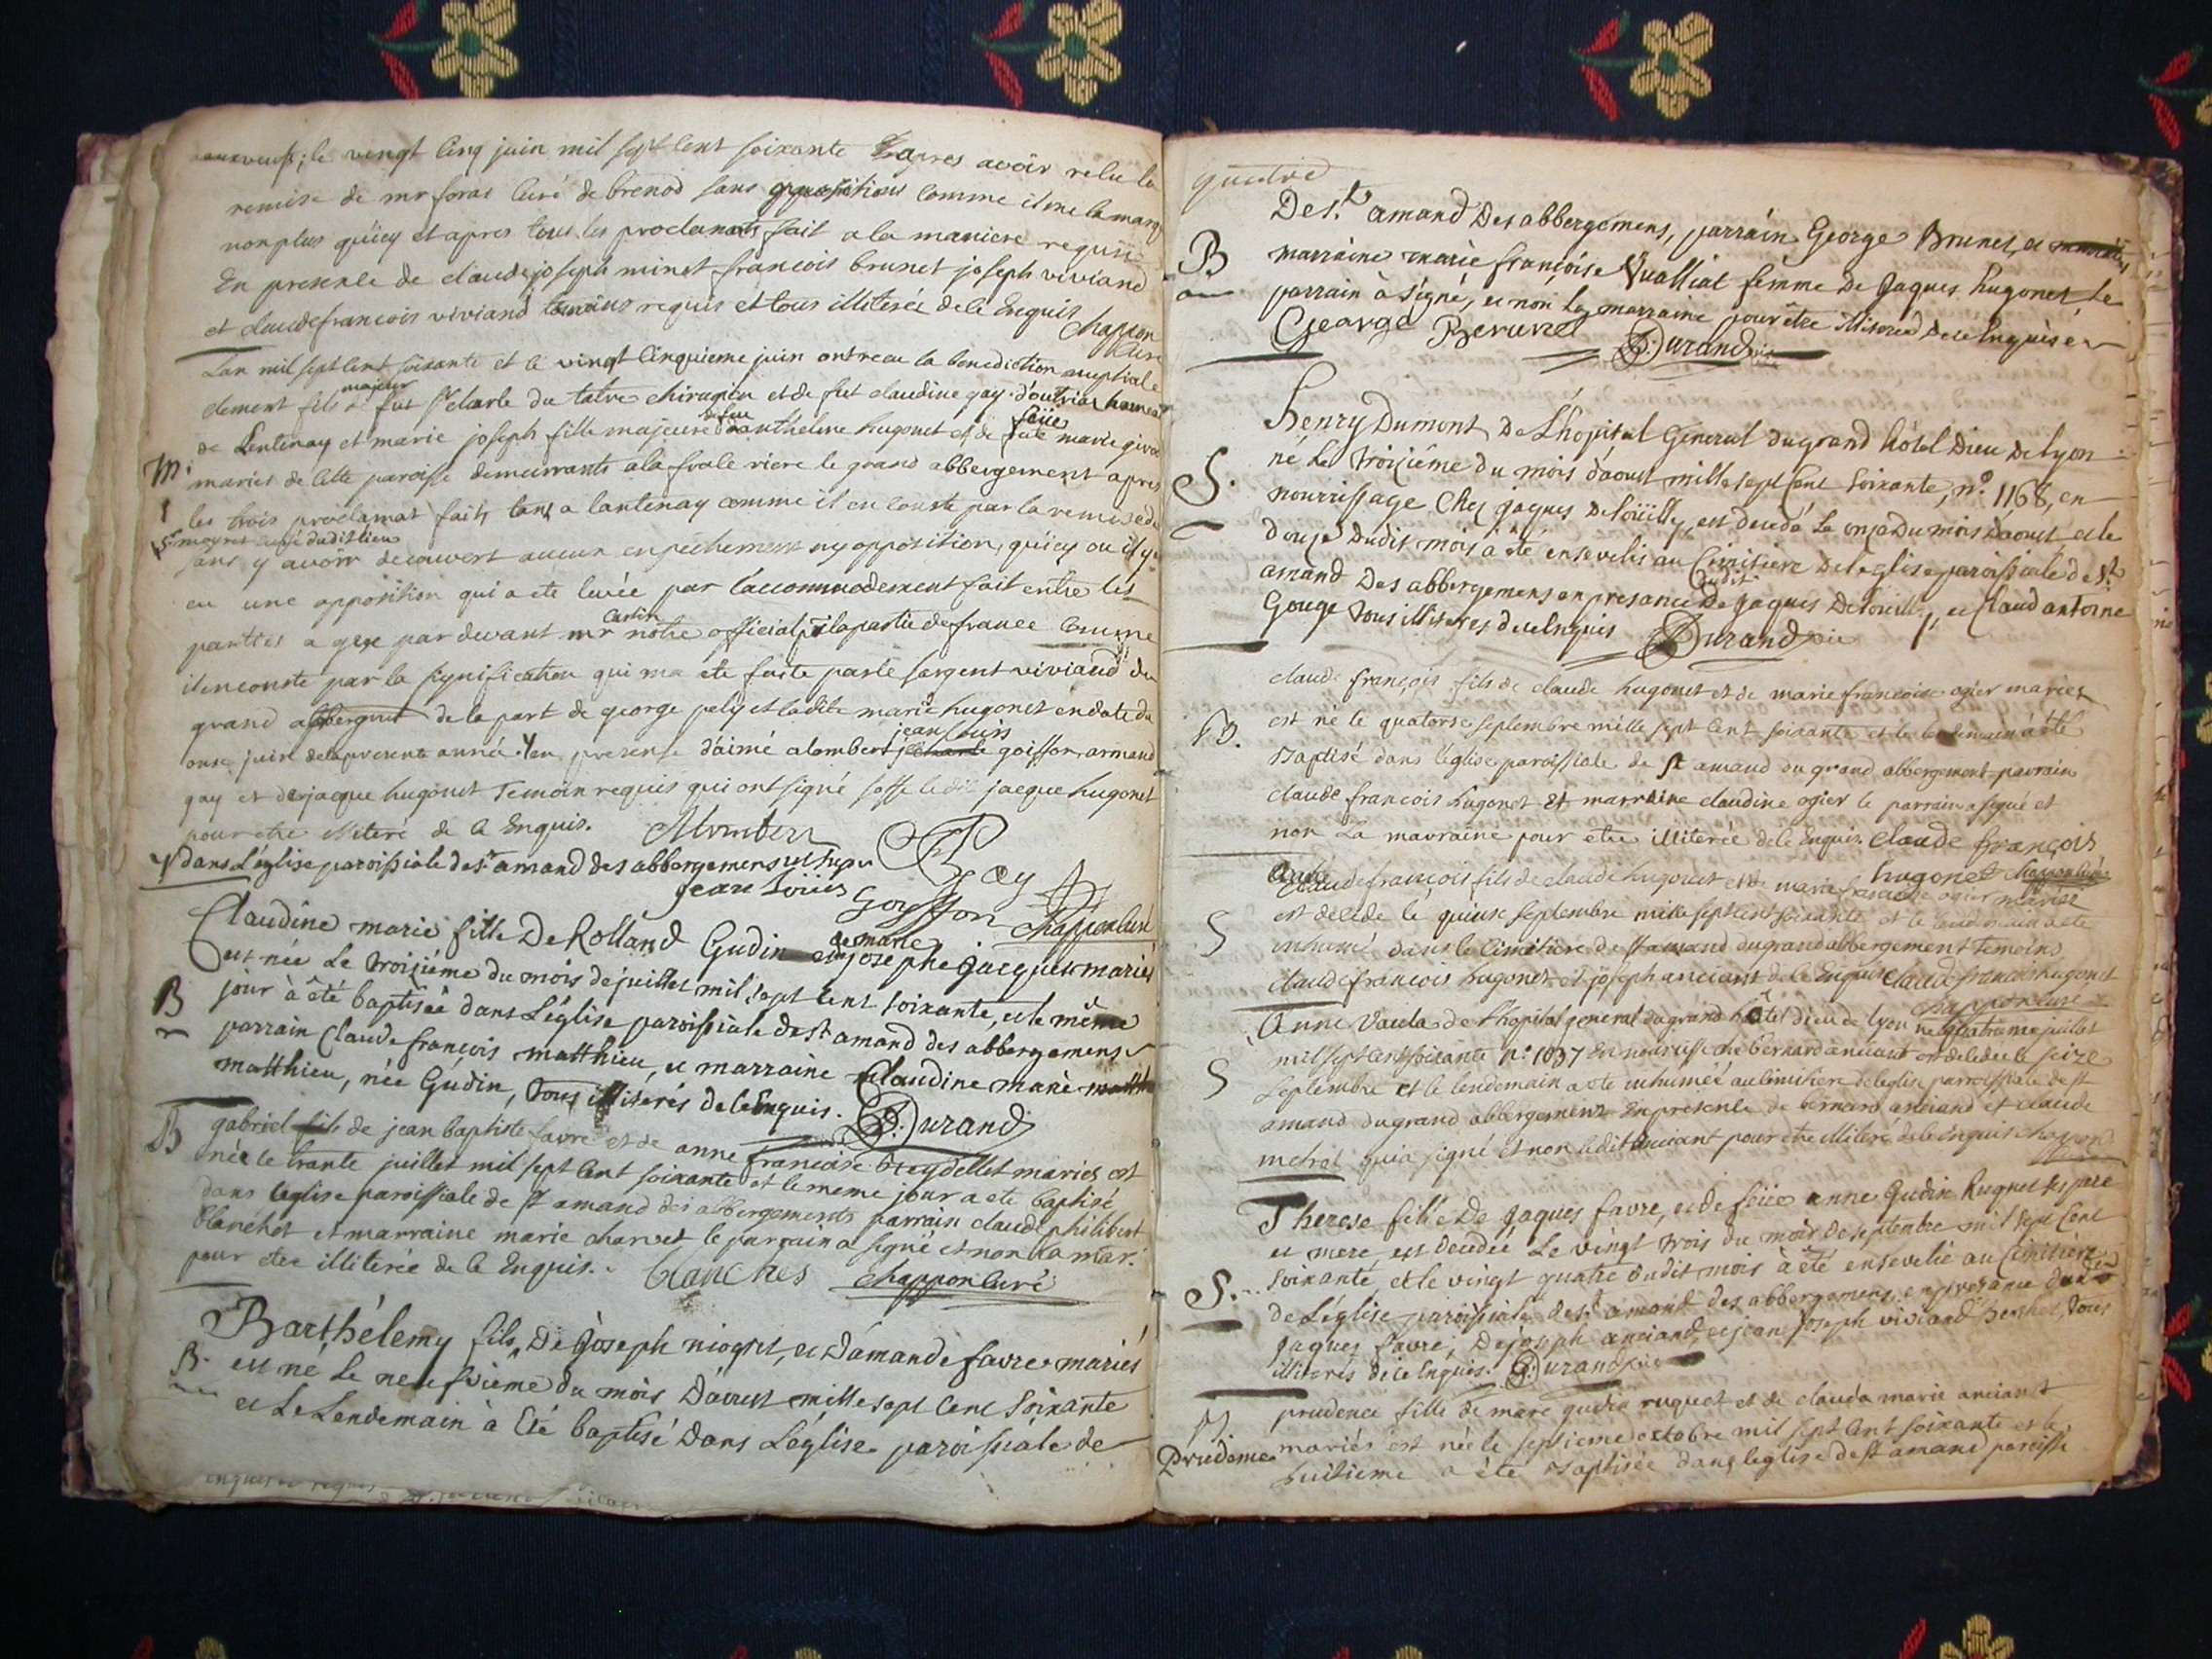 le vingt cinq juin mil sept cent soixante apres avoir relu la
remise de mr curé de brenod sans oppositions comme il me la marq
non plus qu'icy et apres tous les proclamats fait a la maniere requise
En presence de claude joseph minet francois brunet joseph viviand
et claude francois viviand temoins requis et tous illiterés de ce Enquis chappon
curé
Lan mil sept cent soixante et le vingt cinquieme juin ont recu la benediction nuptiale
clement fils majeur fut Sr charle du tatre chirugien et de fut claudine gay d'outriar hameau
de Lentenay et marie joseph fille majeure de feu anthelme hugonet et de feüe marie
maries de cette paroisse demeurrants a la rière le grand abbergement apres
M.
les trois proclamat fait tant a lantenay comme il en conste par la remise de
mr curé dudit lieu
sans y avoir decouvert aucun enpechement ny opposition, qu'icy ou il y a
eu une opposition qui a ete levée par l'accommodement fait entre les
partties a gex par devant mr notre official pr la partie de france comme
il en conste par la signification qui ma ete faite par le sargent viviand du
grand abbergmt de la part de george pely et ladite marie hugonet en date du
onse juin de la presente année. en presense d'aimé alombert jean louis goiffon armand
gay et de jacque hugonet Temoin requis qui ont signé jacque hugonet
pour etre illiteré de ce Enquis. Alombert
dans L'église paroissiale de st amand des abbergemens Gay
jean Loüis Goyffon chappon curé
Claudine marie fille De Rolland Gudin de marie josephe jacquet mariés
est née Le troisiéme du mois de juillet mil sept cent soixante, et le même
B
jour à été baptisée dans L'église paroissiale de st amand des abbergemens
parrain Claude françois matthieu, et marraine Claudine marie
matthieu, née Gudin, tous illiterés de ce Enquis. Durand
B
gabriel fils de jean baptiste favre et de anne francoise breydellet mariés est
née le trante juillet mil sept cent soixante et le meme jour a ete baptisé
dans leglise paroissiale de st amand des abbergements parrain claude philibert
blanchet et marraine marie charvet le parrain a signé et non la mar.
pour etre illiterée de ce Enquis. blanchet chappon curé
Barthélemy fils De joseph niogret, et d'amande favre mariés
B.
est né Le neufvieme du mois D'aoust mille sept Cent Soixante
et Le Lendemain à Eté baptisé Dans L'église paroissiale de
De st amand Des abbergemens, parrain George Brunet, et
B
marraine marie françoise Vualliat femme De jaques hugonet Le
parrain à signé, et non La marraine pour être illiterée De ce Enquise
George Berunet Durand
Henry Dumont De L'hopital General du grand hôtel Dieu De Lyon
né Le troisiéme du mois d'aoust mille sept Cent Soixante, n.º 1168, en
S.
nourrissage Chez jaques Deloüilly, est decedé Le onze Du mois D'aoust et le
douze Dudit mois à été ensevelis au Cimitiere De leglise paroissiale de st
amand Des abbergemens en presance Dudit jaques Delouilly, et Claud antoine
Gouge tous illiterés de ce Enquis Durand
claude françois fils de claude hugonet et de marie francoise ogier mariez
est né le quatorse septembre mille sept cent soixante et le lendemain a été
B.
Baptisé dans l'église paroissiale de st amand du grand abbergement parrain
claude francois hugonet Et marraine claudine ogier le parrain a signé et
non La marraine pour etre illiterée de ce Enquis. Claude françois
hugonet chappon curé
Claude francois fils de claude hugonet et de marie francoise ogier mariés
est decede le quinse septembre mille sept cent soixante et le lendemain a ete
S
inhumé dans le Cimitiere de st amand du grand abbergement Temoins
claude francois hugonet et joseph anciant de ce Enquis Claude francois hugonet
chappon curé
Anne Vaula de l'hopital general du grand hôtel dieu de lyon née quatrieme juillet
mil sept cent soixante n.º 1037 En nourisse che bernard anciant est decedee le seize
S
septembre et le lendemain a ete inhumée au cimitiere de leglise parroissiale de st
amand du grand abbergement En presence de bernard anciand et claude
metral qui a signé et non ledit anciant pour etre illiteré de ce Enquis chappon
Therese fille De jaques favre, et de feüe anne Gudin Rugnet
et mere est decedeé Le vingt trois du mois de septembre mil sept Cent
soixante, et le vingt quatre dudit mois à été ensevelie au Cimitiere
S.
de L'église paroissiale de st amand des abbergemens, en presance dudit
jaques favre, De joseph anciand, et jean joseph viviand berthet, tous
illiterés de ce Enquis. Durand
prudence fille de marc gudin rugnet et de clauda marie anciant
B
mariés est née le septieme octobre mil sept cent soixante et le
Prudence
huitieme a été Baptisée dans leglise de st amand paroisse